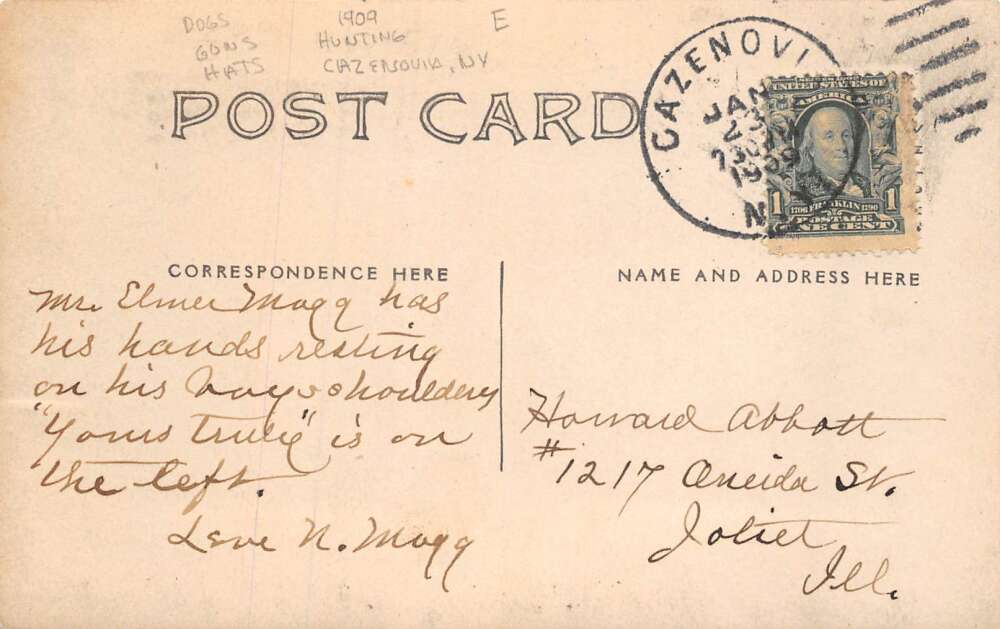 DOGS
GUNS
HATS
1909
HUNTING
CAZENOVIA, NY
E
POST CARD
CAZENOVI
JAN
23
730
1909
N.Y.
UNITED STATES OF
AMERICA
1 1
1706 FRANKLIN 1790
POSTAGE
ONE CENT
CORRESPONDENCE HERE
NAME AND ADDRESS HERE
Mr. Elmer Mogg has
his hands resting
on his boys shoulders
"Yours truly" is on
the left.
Leve N. Mogg
Howard Abbott
#1217 Oneida St.
Joliet
Ill.